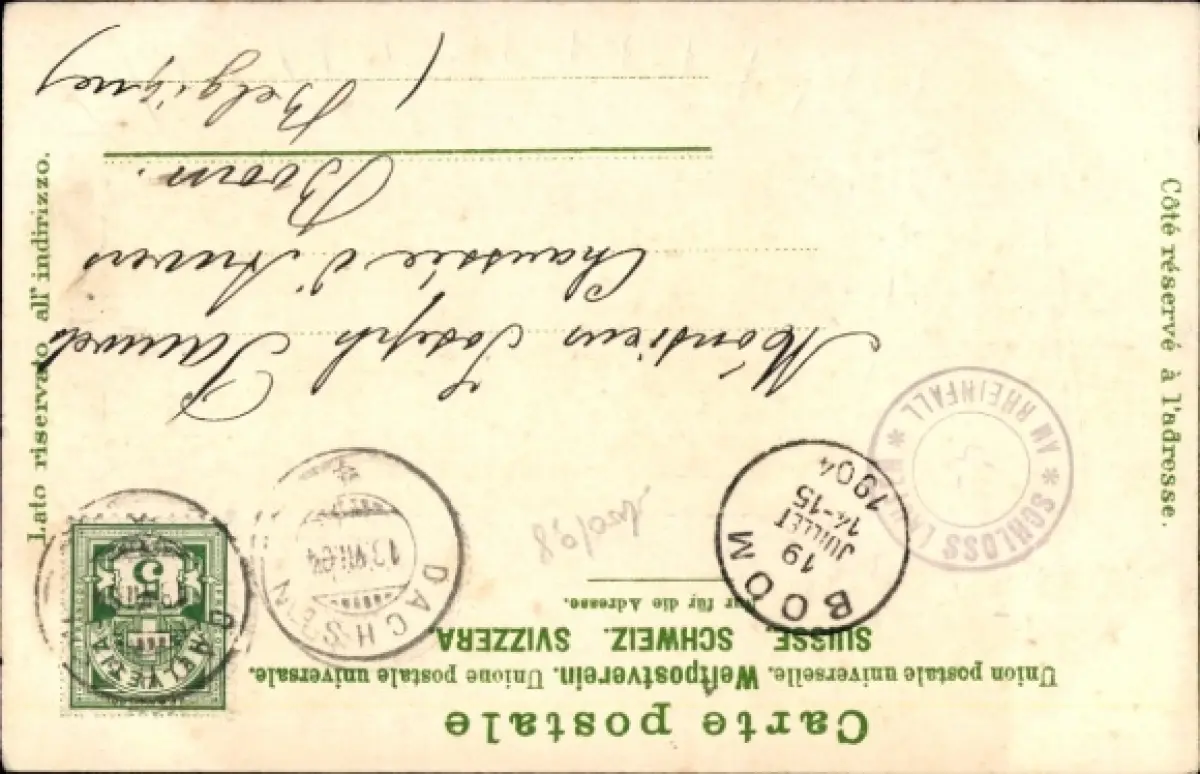 Carte postale
Union postale universelle. Weltpostverein. Unione postale universale.
SUISSE. SCHWEIZ. SVIZZERA.
Nur für die Adresse.
Côté réservé à l'adresse.
Lato riservato all'indirizzo.
HELVETIA
5
DACHSEN
BOOM
19
JUILLET
14-15
1904
* SCHLOSS LAUFEN * AM RHEINFALL
Monsieur Joseph
Chaussée d'Anvers
Boom.
(Belgique)